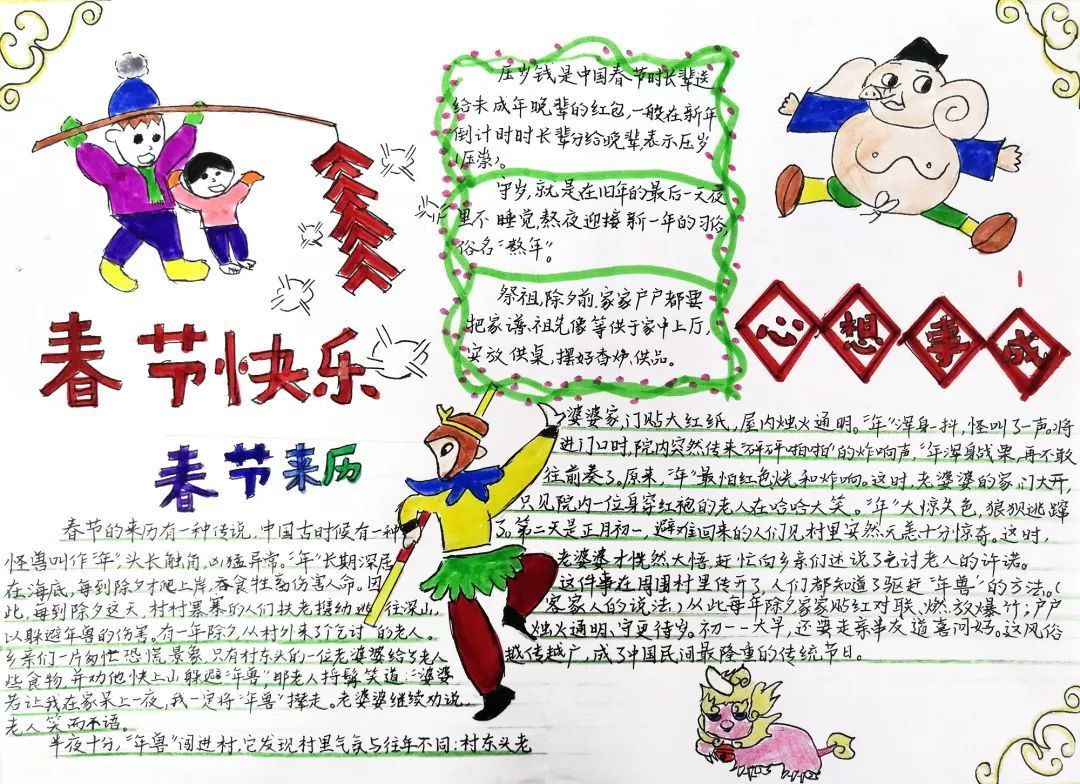 春节快乐
压岁钱是中国春节时长辈送
给未成年晚辈的红包,一般在新年
倒计时时长辈分给晚辈,表示压岁
(压祟)。
守岁,就是在旧年的最后一天夜
里不睡觉,熬夜迎接新一年的习俗,
俗名“熬年”。
祭祖,除夕前,家家户户都要
把家谱,祖先像等供于家中上厅,
安放供桌,摆好香炉,供品。
心想事成
春节来历
春节的来历有一种传说,中国古时候有一种
怪兽叫作“年”,头长触角,凶猛异常。“年”长期深居
在海底,每到除夕才爬上岸,吞食牲畜伤害人命。因
此,每到除夕这天,村村寨寨的人们扶老携幼逃往深山,
以躲避年兽的伤害。有一年除夕,从村外来了个乞讨的老人。
乡亲们一片匆忙恐慌景象,只有村东头的一位老婆婆给了老人
些食物,并劝他快上山躲避“年兽”,那老人捋髯笑道:“婆婆
若让我在家呆上一夜,我一定将“年兽”撵走。老婆婆继续劝说,
老人笑而不语。
半夜十分,“年兽”闯进村,它发现村里气氛与往年不同:村东头老
婆婆家,门贴大红纸,屋内烛火通明。“年”浑身一抖,怪叫了一声。将
进门口时,院内突然传来“砰砰啪啪”的炸响声,“年浑身战栗,再不敢
往前凑了。原来,“年”最怕红色、火光和炸响。这时,老婆婆的家门大开,
只见院内一位身穿红袍的老人在哈哈大笑。“年”大惊失色,狼狈逃蹿
了。第二天是正月初一,避难回来的人们见村里安然无恙十分惊奇。这时,
老婆婆才恍然大悟,赶忙向乡亲们述说了乞讨老人的许诺。
这件事在周围村里传开了,人们都知道了驱赶“年兽”的方法。(
客家人的说法)从此每年除夕家家贴红对联、燃放爆竹;户户
烛火通明、守更待岁。初一一大早,还要走亲串友道喜问好。这风俗
越传越广,成了中国民间最隆重的传统节日。